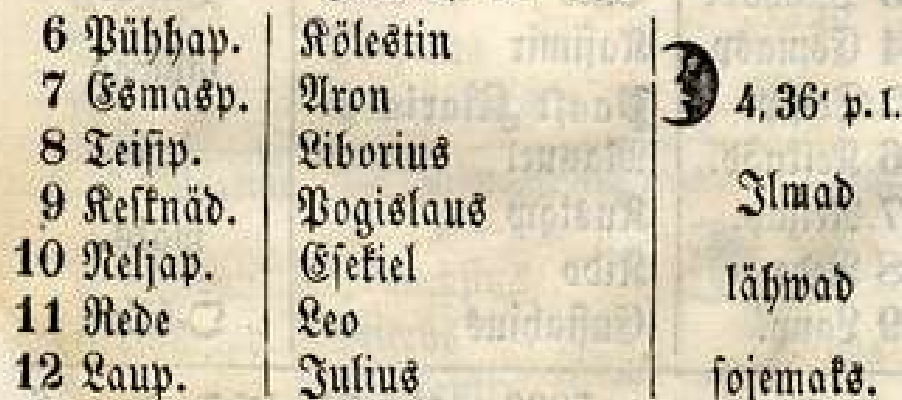 6 Pühhap. Kölestin
7 Esmasp. Aron 4,36' p. l.
8 Teisip. Liborius
9 Kesknäd. Pogislaus Ilmad
10 Neljap. Esekiel lähwad
11 Rede Leo
12 Laup. Julius sojemaks.